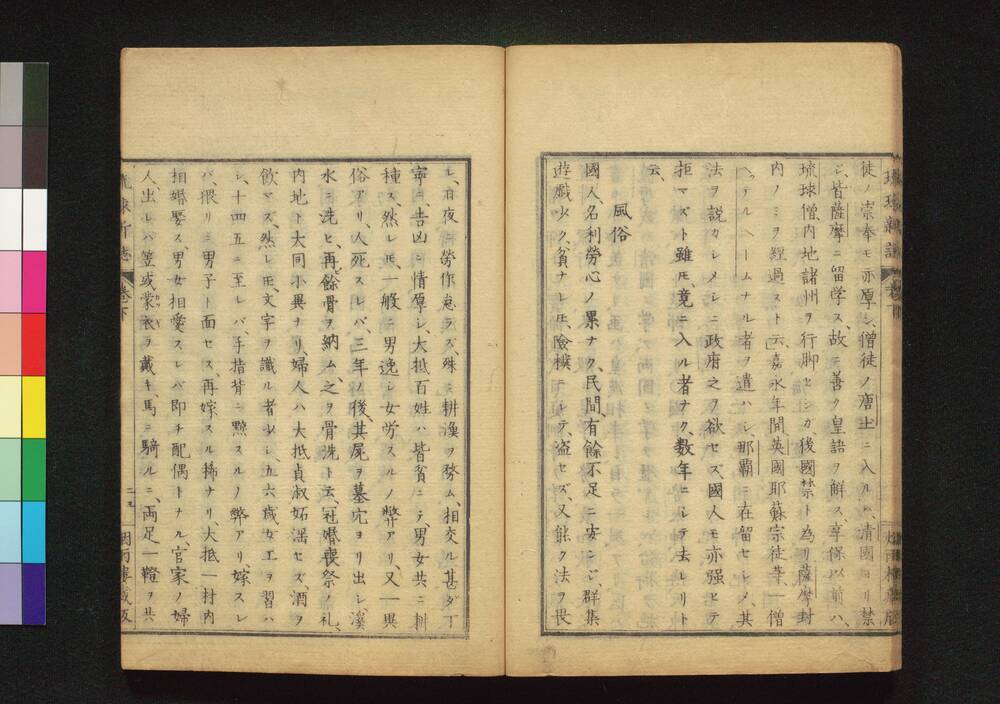 徒ノ崇奉モ亦厚シ、僧徒ノ唐土ニ入ルハ、清國ヨリ禁
シ、皆薩摩ニ留学ス、故ニ善ク皇語ヲ解ス、享保以前ハ、
琉球僧内地諸州ヲ行脚セシカ、後國禁ト為リ薩摩封
内ノミヲ経過スト云、嘉永年間英國耶蘇宗徒等一僧
ヘヲルヘームナル者ヲ遣ハシ、那覇ニ在留セシメ、其
法ヲ説カシメシニ政府之ヲ欲セズ、國人モ亦强ヒテ
拒マズト雖モ、竟ニ入ル者ナク、数年ニシテ去レリト
云、
風俗
國人、名利勞心ノ累ナク、民間有餘不足ニ安ンジ、群集
遊戯少ク、貧ナレ𪜈險樸ニシテ、盗セズ、又能ク法ヲ畏
レ、日夜ニ勞作怠ラズ、殊ニ耕漁ヲ務ム、相交ル甚ダ丁
寧ニ、吉凶ニ情厚シ、大抵百姓ハ皆貧ニテ男女共ニ耕
種ス、然レ𪜈、一般ニ男逸シ女労スルノ弊アリ、又一異
俗アリ、人死スレバ、三年ノ後、其屍ヲ墓穴ヨリ出シ、溪
水ニ洗ヒ、再餘骨ヲ納ム、之ヲ骨洗ト云、冠婚喪祭ノ礼、
内地ト大同小異ナリ、婦人ハ大抵貞叔妬淫セズ、酒ヲ
飲マズ、然レ𪜈、文字ヲ識ル者少シ、五六歳女工ヲ習ハ
シ、十四五ニ至レバ、手指背ニ黥スルノ弊アリ、嫁スレ
バ、猥リニ男子ト面セス、再嫁スル稀ナリ、大抵一村内
相婚娶ス、男女相愛スレバ即チ配偶トナル、官家ノ婦
人、出レハ笠或蒙衣ヲ戴キ、馬ニ騎ルニ、両足一鐙ヲ共
巻下
二五